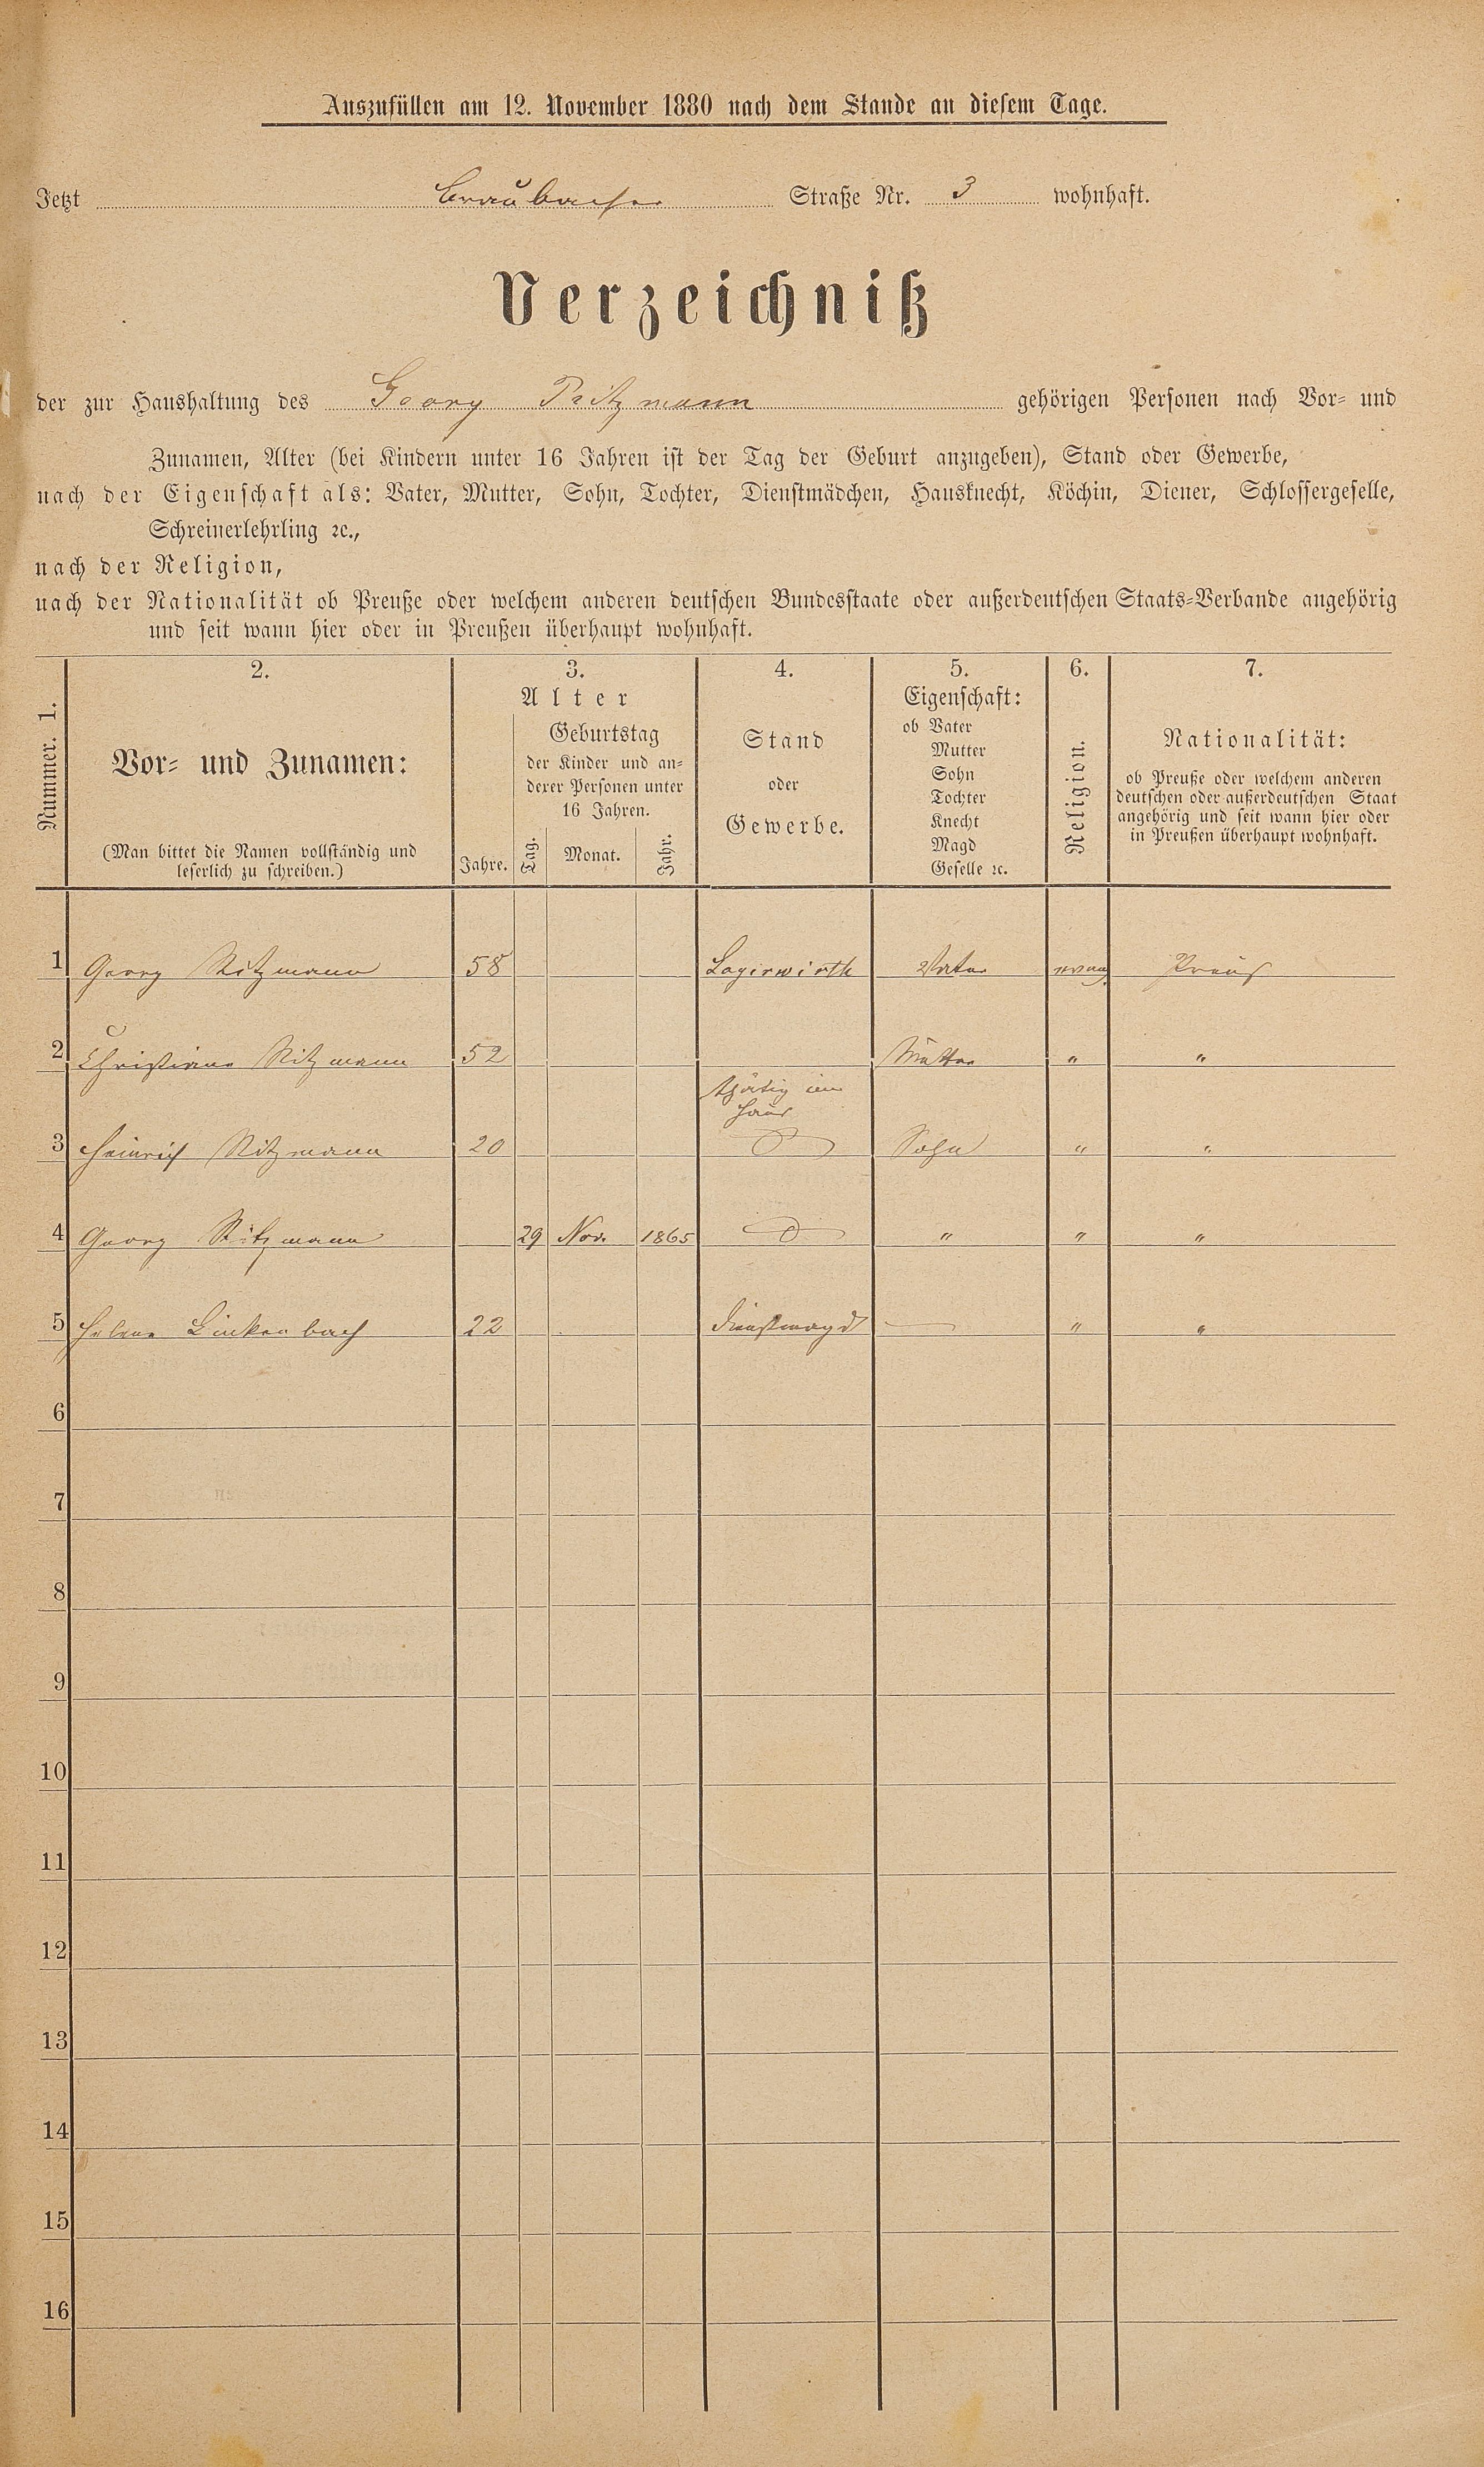 Auszufüllen am 12. November 1880 nach dem Stande an diesem Tage.
Jetzt Braubacher Straße Nr. 3 wohnhaft.
Verzeichniß
der zur Haushaltung des Georg Ritzmann gehörigen Personen nach Vor- und
Zunamen, Alter (bei Kindern unter 16 Jahren ist der Tag der Geburt anzugeben), Stand oder Gewerbe,
nach der Eigenschaft als: Vater, Mutter, Sohn, Tochter, Dienstmädchen, Hausknecht, Köchin, Diener, Schlossergeselle,
Schreinerlehrling ꝛc.,
nach der Religion,
nach der Nationalität ob Preuße oder welchem anderen deutschen Bundesstaate oder außerdeutschen Staats-Verbande angehörig
und seit wann hier oder in Preußen überhaupt wohnhaft.
Nummer. 1.
2.
Vor- und Zunamen:
(Man bittet die Namen vollständig und
leserlich zu schreiben.)
3.
Alter
Jahre.
Geburtstag
der Kinder und an-
derer Personen unter
16 Jahren.
Tag. Monat. Jahr.
4.
Stand
oder
Gewerbe.
5.
Eigenschaft:
ob Vater
Mutter
Sohn
Tochter
Knecht
Magd
Geselle ꝛc.
6.
Religion.
7.
Nationalität:
ob Preuße oder welchem anderen
deutschen oder außerdeutschen Staat
angehörig und seit wann hier oder
in Preußen überhaupt wohnhaft.
1 Georg Ritzmann 58 Logirwirth Vater evang. Preuß
2 Christiane Ritzmann 52 Mutter " "
thätig im
Haus
3 Heinrich Ritzmann 20 Sohn " "
4 Georg Ritzmann 29 Nov. 1865 " " "
5 Helene Linkenbach 22 Dienstmagd — " "
6
7
8
9
10
11
12
13
14
15
16